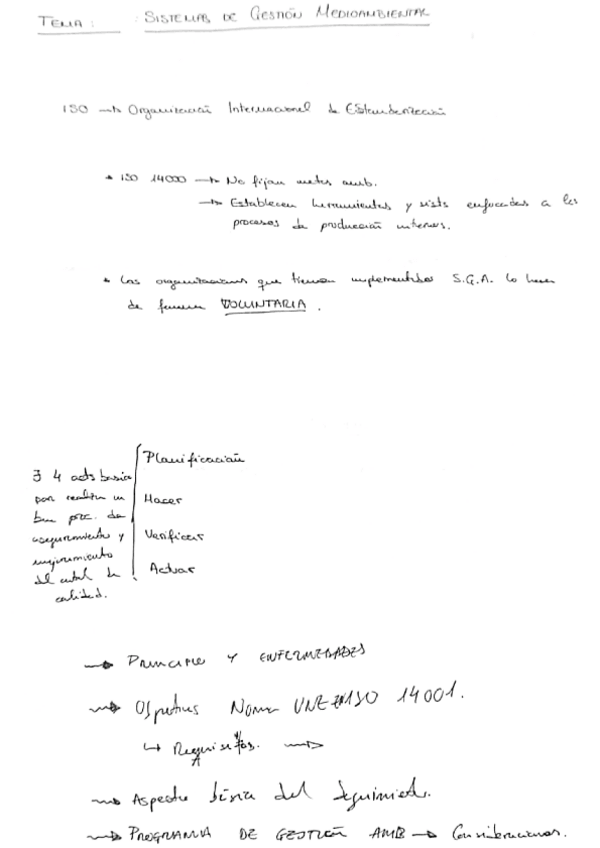 TEMA: SISTEMAS DE GESTIÓN MEDIOAMBIENTAL
ISO → Organización Internacional de Estandarización
* ISO 14000 → No fijan metas amb.
→ Establecen herramientas y sists enfocadas a los
procesos de producción internos.
* Las organizaciones que tienen implementados S.G.A. lo hacen
de forma VOLUNTARIA.
Planificación
∃ 4 acts basic
para realizar un
Hacer
buen proc. de
aseguramiento y
Verificar
mejoramiento
Actuar
del control de
calidad.
→ PRINCIPIO Y ENFERMEDADES
→ Objetivos Norma UNE EN ISO 14001.
↳ Requisitos. →
→ Aspectos básicos del Seguimiento.
→ PROGRAMA DE GESTIÓN AMB → Consideraciones.